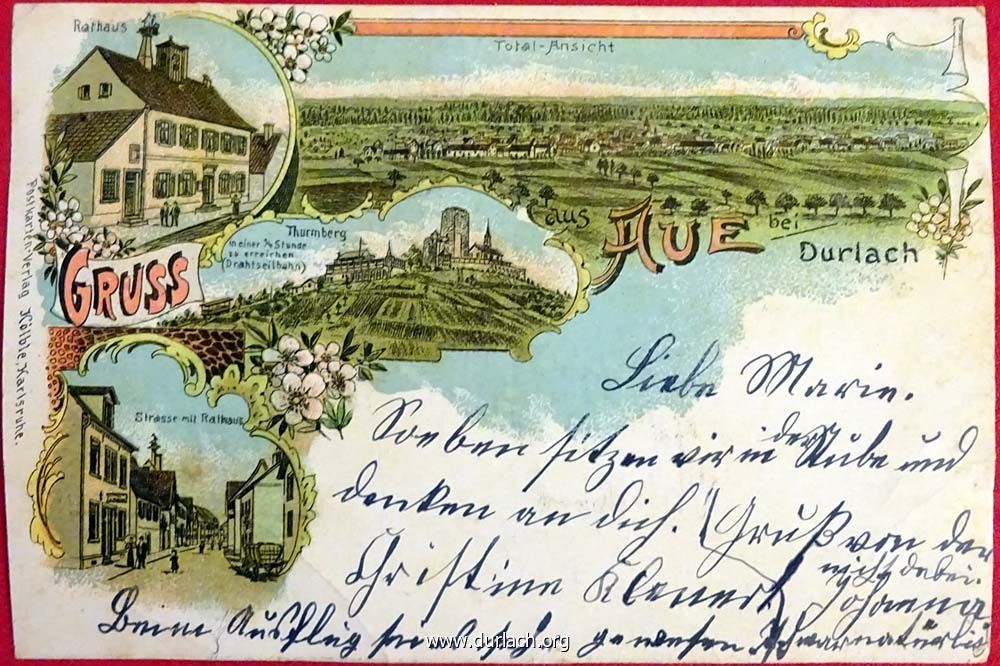 Rathaus
Total-Ansicht
Thurmberg
in einer ¼ Stunde
zu erreichen
(Drahtseilbahn)
GRUSS
aus AUE bei
Durlach
Postkarten-Verlag Kölble, Karlsruhe.
Strasse mit Rathaus
Liebe Marie.
Soeben sitzen wir in der Stube und
denken an dich. Gruß von der
Christine Klenert Johanna
nicht dabei.
Beim Ausflug gewesen natürlich
www.durlach.org